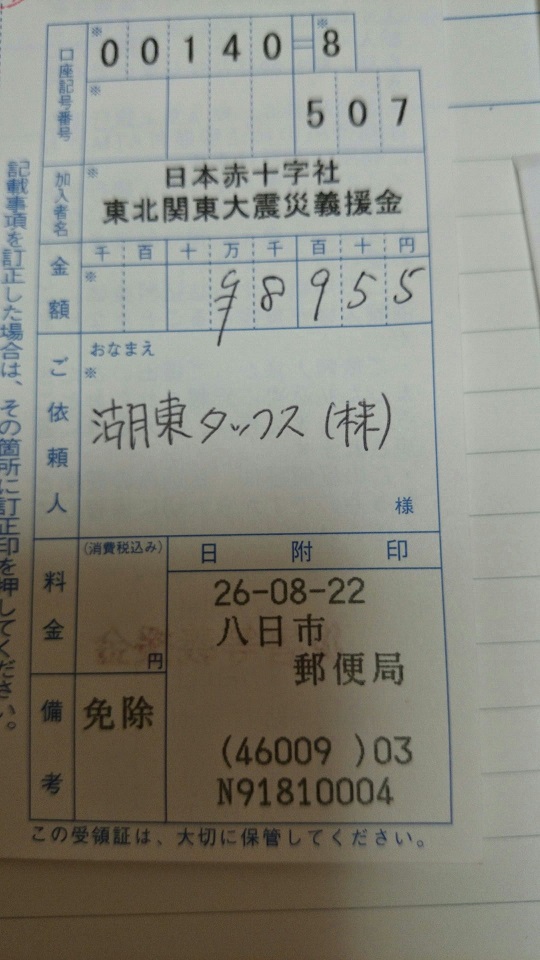 口座記号番号
※ 00140-8
※ 507
加入者名
※ 日本赤十字社
東北関東大震災義援金
金額
千 百 十 万 千 百 十 円
※ ¥98955
ご依頼人
おなまえ
※
湖東タックス(株)
様
料金
(消費税込み)
円
備考
免除
日附印
26-08-22
八日市
郵便局
(46009 )03
N91810004
この受領証は、大切に保管してください。
記載事項を訂正した場合は、その箇所に訂正印を押してください。